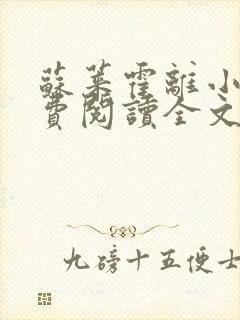 蘇萊霍離小
費閱讀全文
九磅十五便士